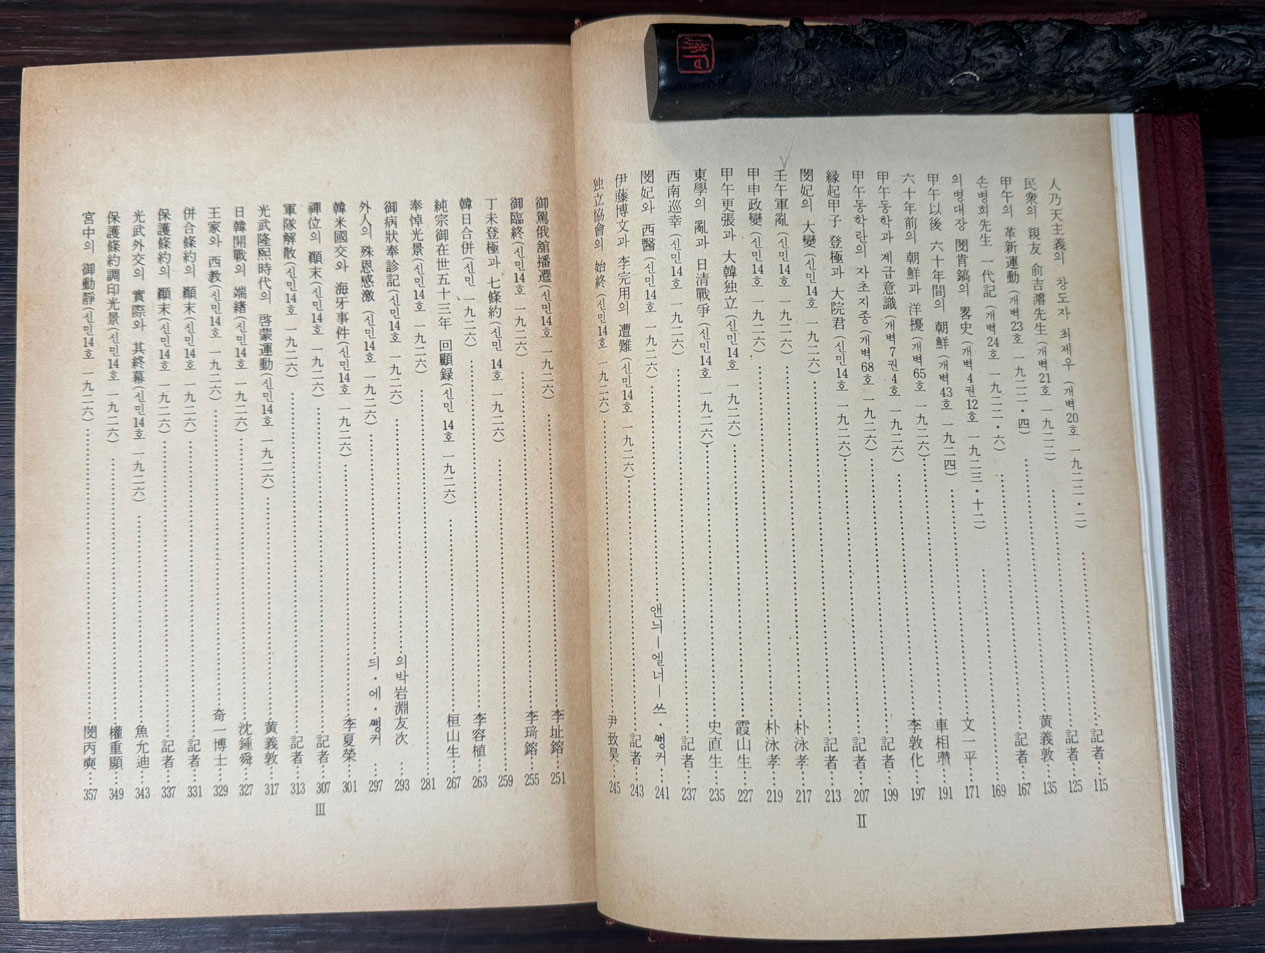 人乃天主義의 창도자 최제우 (개벽20호 一九二二·二)……記者…115
民衆의 親友 俞吉濬先生 (개벽21호 一九二二)……記者…125
甲午의 革新運動 (개벽23호 一九二二·四)……黄義敦…135
손병희先生 一代記 (개벽24호 一九二二·六)……記者…167
의병대장 閔肯鎬의 畧史 (개벽4권12호 一九二三·十二)……169
甲午以後 六十年間의 朝鮮 (개벽43호 一九二四)……文一平…171
六十年前의 朝鮮과 洋擾 (개벽65호 一九二六)……車相瓚…191
甲午동학과 계급意識 (개벽7권4호 一九二六)……李敦化…197
甲午동학란의 자초지종 (개벽68호 一九二六)……記者…199
緣起甲子 登極과 大院君 (신민14호 一九二六)……記者…207
閔妃의 大變 (신민14호 一九二六)……記者…213
壬午軍亂 (신민14호 一九二六)……朴泳孝…217
甲申政變 (신민14호 一九二六)……朴泳孝…219
甲午更張과 大韓独立 (신민14호 一九二六)……霞山生…227
東學의 亂과 日清戰爭 (신민14호 一九二六)……史直生…235
西南巡幸 (신민14호 一九二六)……記者…237
閔妃와 西醫 (신민14호 一九二六)……앤늬―엘너―쓰·쩽커…241
伊藤博文과 李完用의 遭難 (신민14호 一九二六)……記者…243
独立協會의 始終 (신민14호 一九二六)……尹致昊…245
II
御駕俄舘播遷 (신민14호 一九二六)……李址鎔…251
御臨終 (신민14호 一九二六)……李琦鎔…255
丁未登極과 七條約 (신민14호 一九二六)……259
韓日合併 (신민14호 一九二六)……李容植…263
純宗御在世五十三年 回顧録 (신민14호 一九二六)……桓山生…267
奉悼光景 (신민14호 一九二六)……281
御病狀奉診記 (신민14호 一九二六)……의박岩淵友次…293
外人의 殊恩感激 (신민14호 一九二六)……듸·에·쩽커…297
韓米國交와 海牙事件 (신민14호 一九二六)……李夏榮…301
禪位의 顚末 (신민14호 一九二六)……記者…307
軍隊解散 (신민14호 一九二六)……記者…313
光武隆熙時代의 啓蒙運動 (신민14호 一九二六)……黄義敦…317
日韓開戰의 端緖 (신민14호 一九二六)……沈鍾舜…327
王家와 西教 (신민14호 一九二六)……奇一博士…329
併合條約의 顚末 (신민14호 一九二六)……記者…331
保護條約의 顚末 (신민14호 一九二六)……記者…337
光武外交의 實際와 其終幕 (신민14호 一九二六)……魚允迪…343
保護條約調印光景 (신민14호 一九二六)……權重顯…349
宮中의 御動靜 (신민14호 一九二六)……閔丙奭…357
III